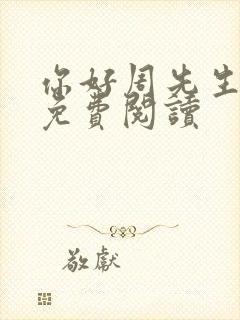 你好周先生
免費閱讀
敬獻